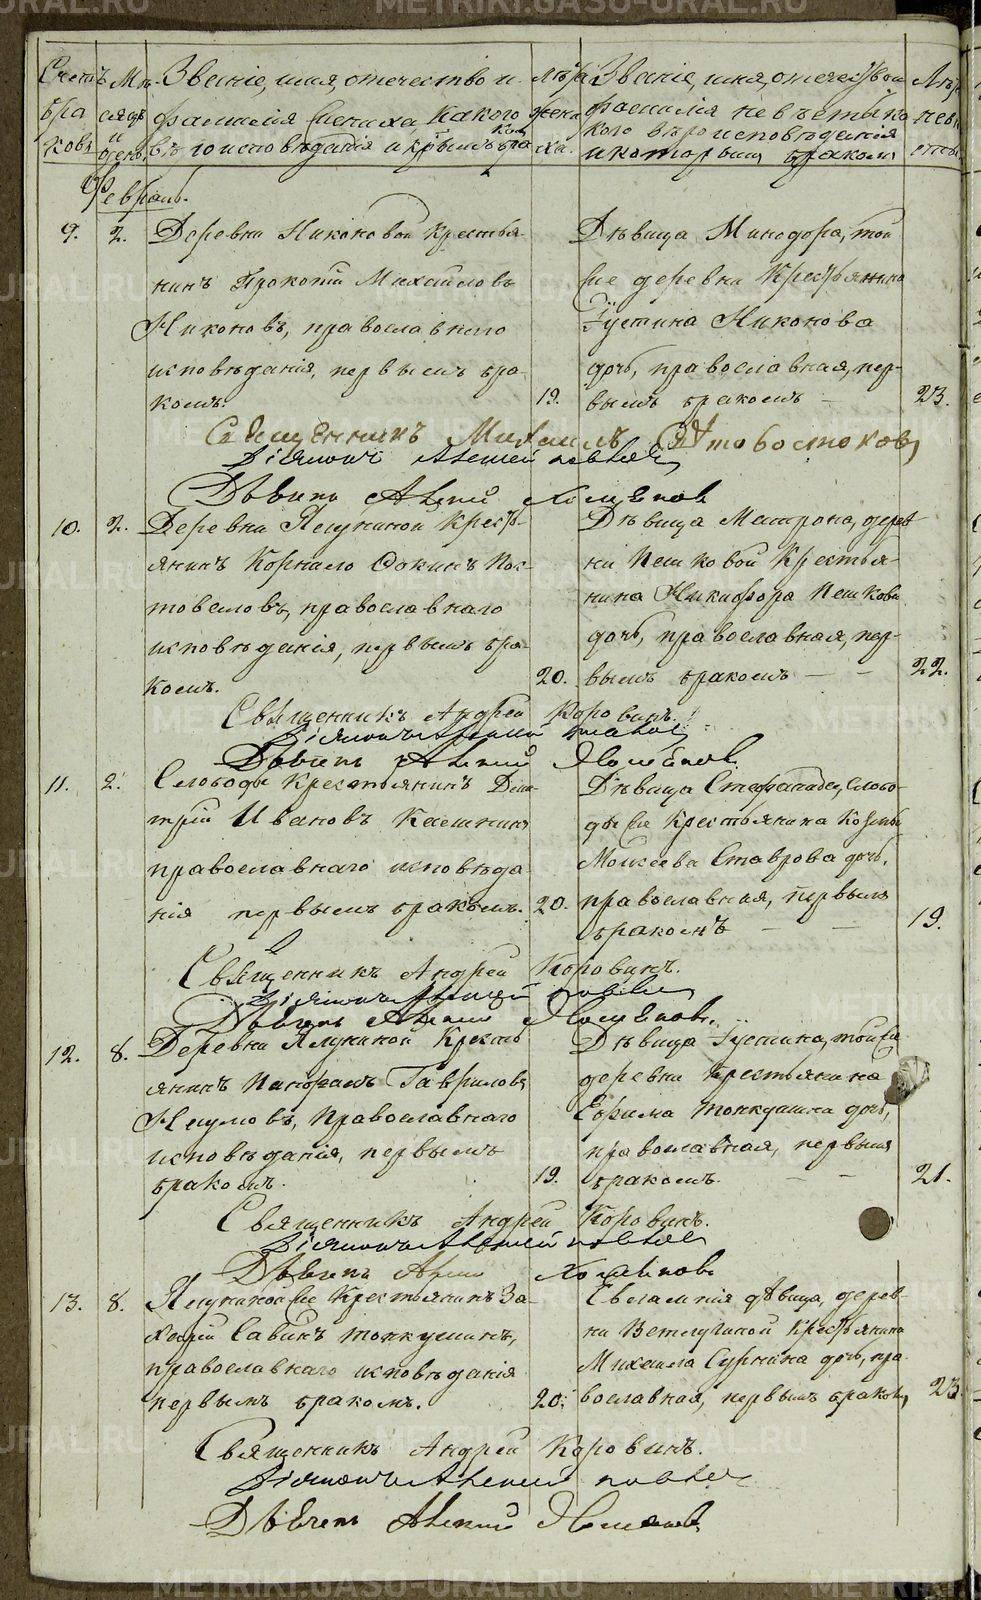 METRIKI.GASO-URAL.RU
Счетъ бра ковъ
Мѣ- сяцъ и день
Званіе, имя, отечество и фамилія жениха, какого вѣроисповѣданія и которымъ бра
Лѣта жени ха.
Званіе, имя, отечество и фамилія невѣсты, ка кого вѣроисповѣданія и которымъ бракомъ
Лѣта невѣ сты.
Февраль.
9. 2. Деревни Никоновой крестья-
нинъ Прокопій Михайловъ
Никоновъ, православнаго
исповѣданія, первымъ бра-
комъ. 19.
Дѣвица Минодора, той
же деревни Крестьянина
Іустина Никонова
дочь, православная, пер-
вымъ бракомъ — 23.
Священникъ Михаилъ
Діаконъ Алексей
10. 2. Деревни Ялуниной Кресть-
янинъ Корнило Фокинъ Пос-
товаловъ, православнаго
исповѣданія, первымъ бра-
комъ. 20.
Дѣвица Матрона, дерев
ни Пешковой Крестья-
нина Никифора Пешкова
дочь, православная, пер-
вымъ бракомъ — — 22.
Священникъ Андрей Коровинъ.
Діаконъ Алексей
11. 2. Слободы Крестьянинъ Дми-
трій Ивановъ
православнаго исповѣда
нія первымъ бракомъ. 20.
Дѣвица Стефанида, Слобо-
ды же Крестьянина Козьмы
Моисеева Ставрова дочь,
православная, первымъ
бракомъ — — 19.
Священникъ Андрей Коровинъ.
Діаконъ Алексей
12. 8. Деревни Ялуниной Кресть
янинъ Панфилъ Гавриловъ
Наумовъ, Православнаго
исповѣданія, первымъ
бракомъ. 19.
Дѣвица Іустина, той же
деревни Крестьянина
Ефима Топкушина дочь,
православная, первымъ
бракомъ. — — 21.
Священникъ Андрей Коровинъ.
Діаконъ Алексей
13. 8. Ялуниной же Крестьянинъ За-
харій Савинъ Топкушинъ,
православнаго исповѣданія
первымъ бракомъ. 20.
Евлампія дѣвица, дерев-
ни Ветлугиной Крестьянина
Михаила Сурнина дочь, пра
вославная, первымъ бракомъ, 23.
Священникъ Андрей Коровинъ.
Діаконъ Алексей
METRIKI.GASO-URAL.RU